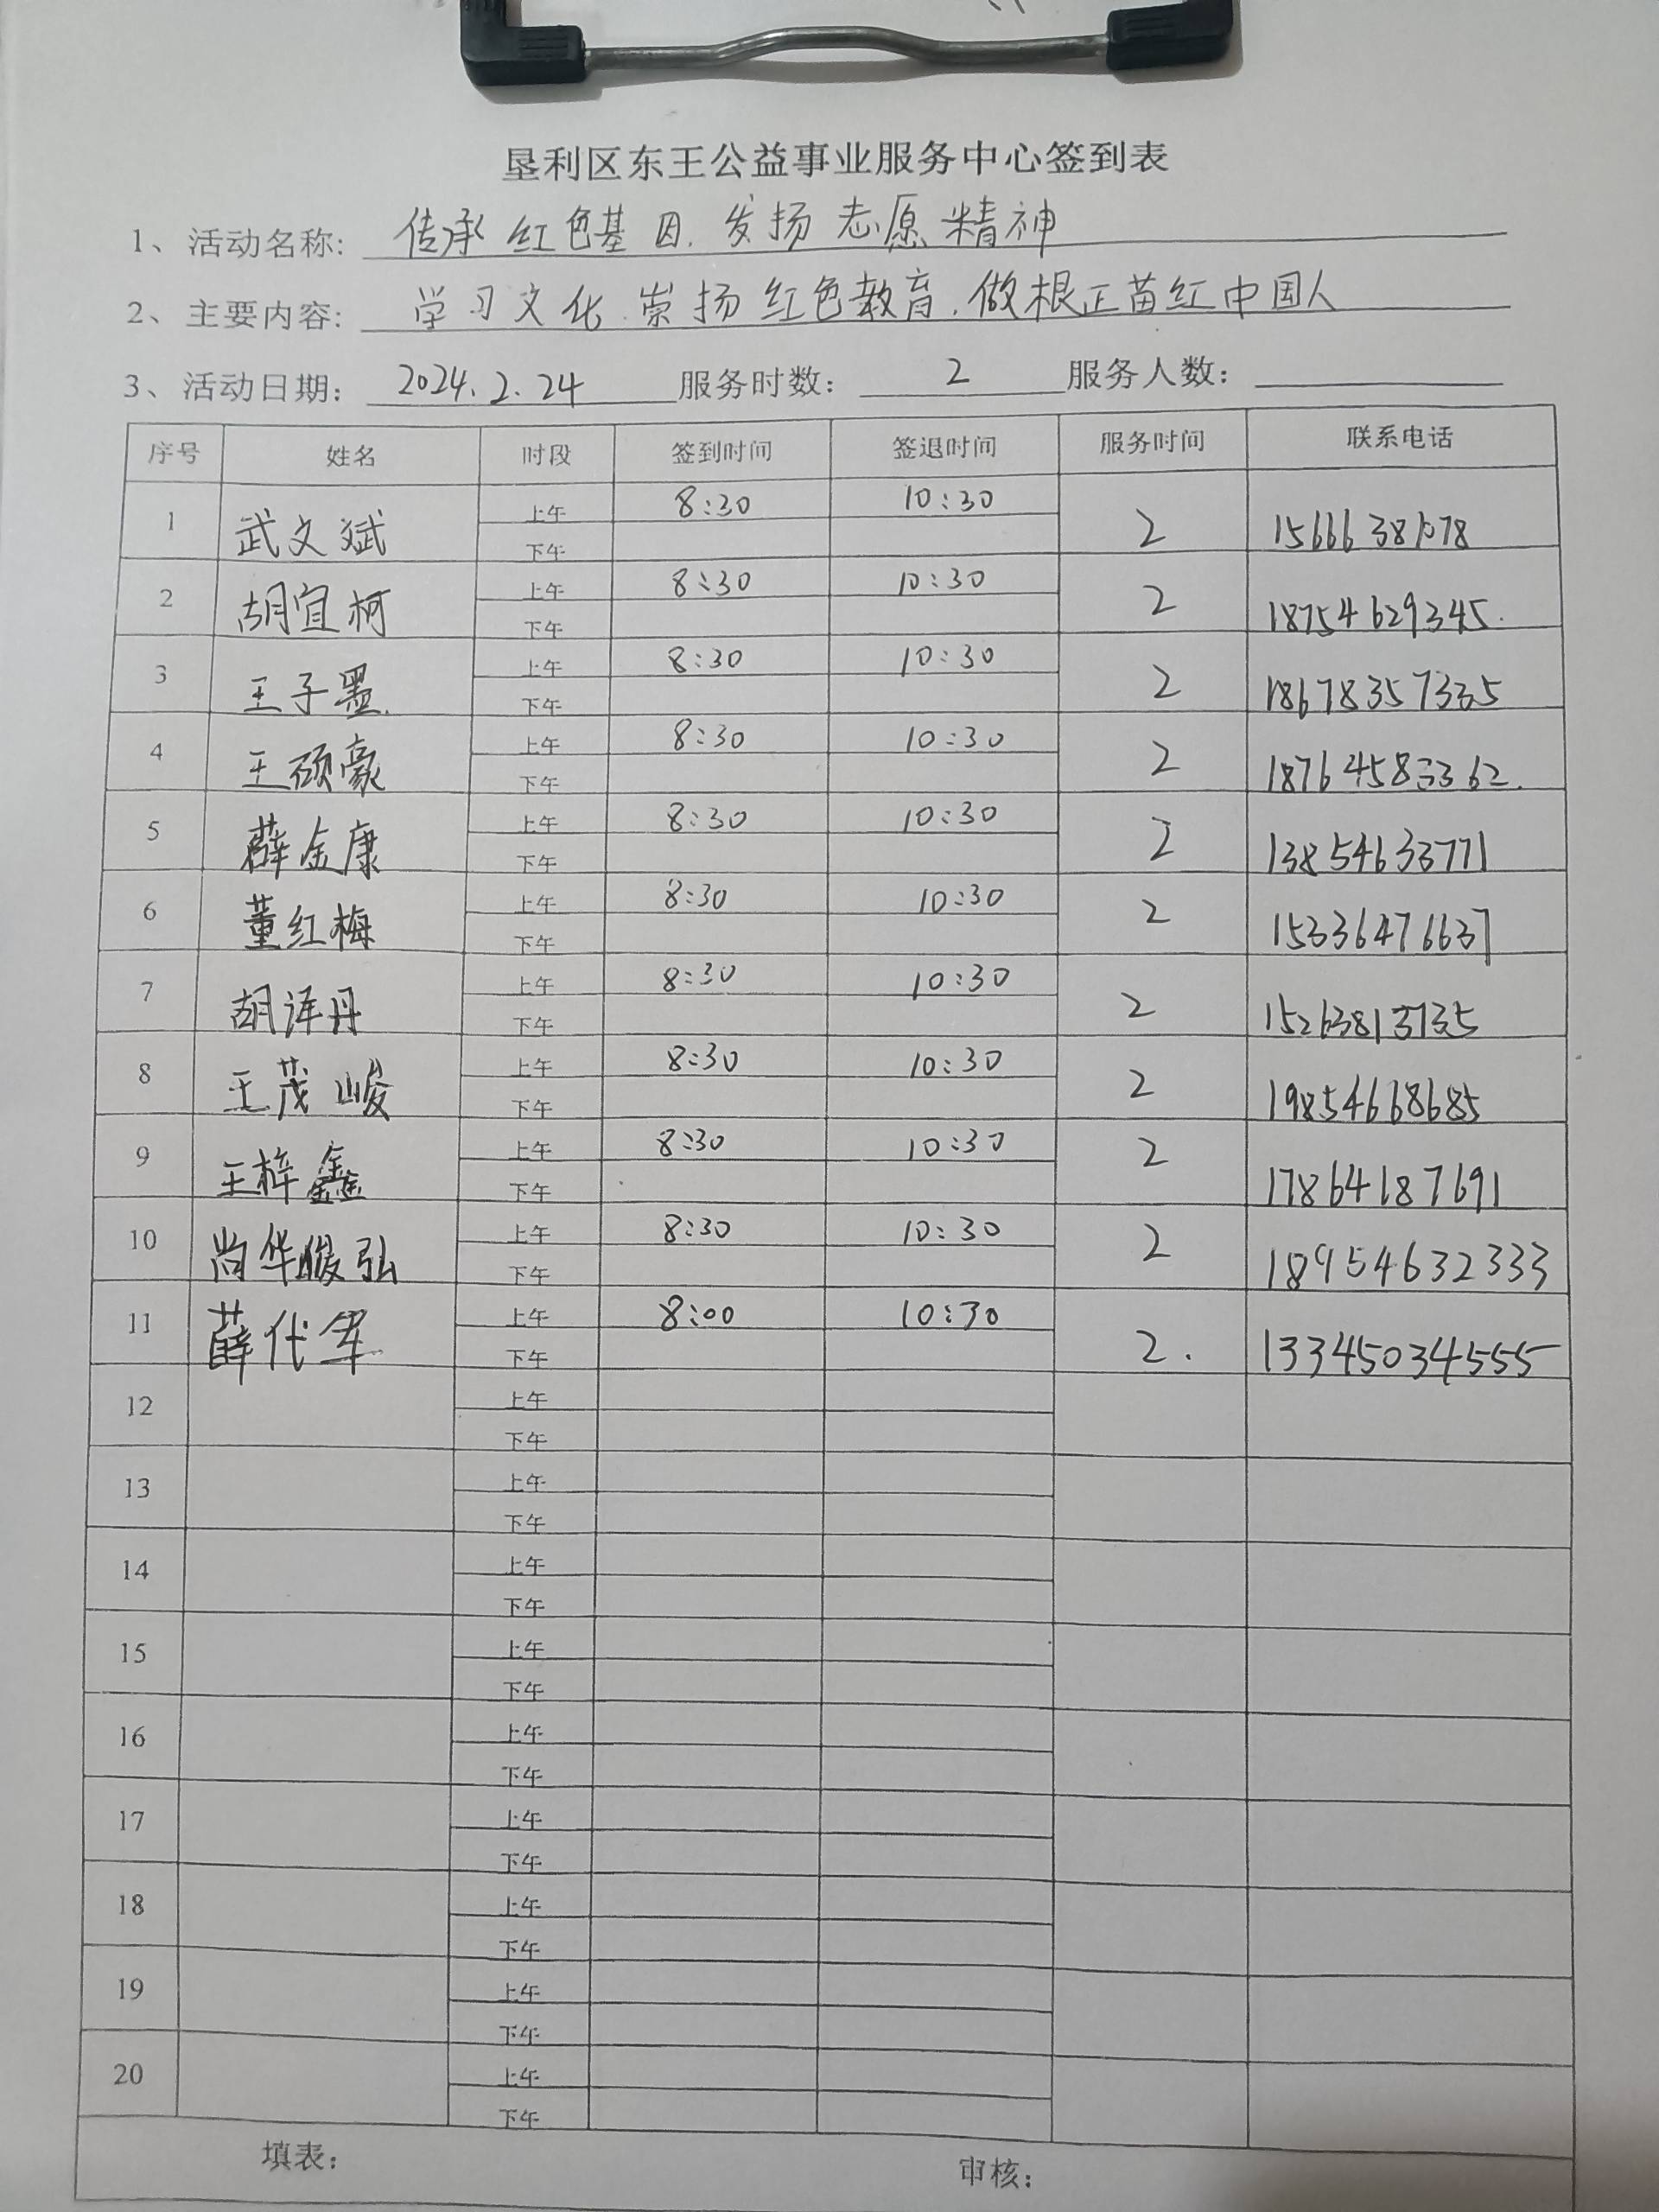 垦利区东王公益事业服务中心签到表
1、活动名称: 传承红色基因.发扬志愿精神
2、主要内容: 学习文化.崇扬红色教育.做根正苗红中国人
3、活动日期: 2024.2.24 服务时数: 2 服务人数:
序号 姓名 时段 签到时间 签退时间 服务时间 联系电话
1 武文斌 上午 8:30 10:30 2
下午
2 胡宜柯 上午 8:30 10:30 2 18754629345.
下午
3 王子墨. 上午 8:30 10:30 2 18678357335
下午
4 王硕豪 上午 8:30 10:30 2 18764583362.
下午
5 薛金康 上午 8:30 10:30 2 13854633771
下午
6 董红梅 上午 8:30 10:30 2 15336476637
下午
7 胡译丹 上午 8:30 10:30 2 15263813735
下午
8 王茂峻 上午 8:30 10:30 2 19854668685
下午
9 王梓鑫 上午 8:30 10:30 2 17864187691
下午
10 尚华骏弘 上午 8:30 10:30 2 18954632333
下午
11 薛代军 上午 8:00 10:30 2. 13345034555
下午
12 上午
下午
13 上午
下午
14 上午
下午
15 上午
下午
16 上午
下午
17 上午
下午
18 上午
下午
19 上午
下午
20 上午
下午
填表: 审核: